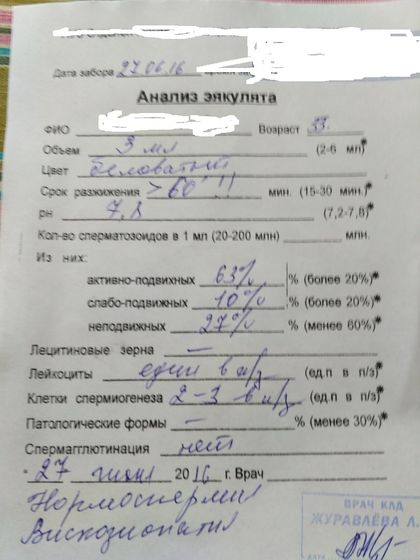 Дата забора 27.06.16 время
Анализ эякулята
ФИО Возраст 33
Объем 3 мл (2-6 мл)*
Цвет беловатый
Срок разжижения > 60' !! мин. (15-30 мин.)*
рн 7,8 (7,2-7,8)*
Кол-во сперматозоидов в 1 мл (20-200 млн) млн.
Из них:
активно-подвихных 63% % (более 20%)*
слабо-подвижных 10% % (более 20%)*
неподвижных 27% % (менее 60%)*
Лецитиновые зерна –
Лейкоциты един в п/з (ед.п в п/з)*
Клетки спермиогенеза 2-3 в п/з (ед.п в п/з)*
Патологические формы – % (менее 30%)*
Спермагглютинация нет
27 июня 2016 г. Врач
Нормоспермия
Вискозипатия
ВРАЧ КЛД
ЖУРАВЛЁВА Л.
ДАТА